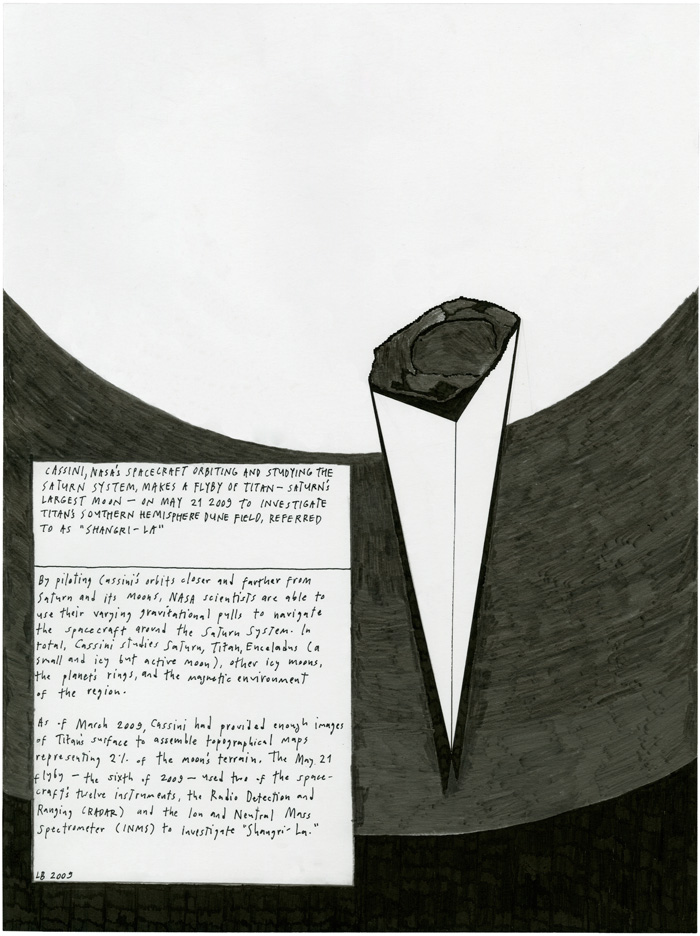 CASSINI, NASA'S SPACECRAFT ORBITING AND STUDYING THE
SATURN SYSTEM, MAKES A FLYBY OF TITAN – SATURN'S
LARGEST MOON – ON MAY 21 2009 TO INVESTIGATE
TITAN'S SOUTHERN HEMISPHERE DUNE FIELD, REFERRED
TO AS "SHANGRI-LA"
By piloting Cassini's orbits closer and farther from
Saturn and its moons, NASA scientists are able to
use their varying gravitational pulls to navigate
the spacecraft around the Saturn System. In
total, Cassini studies Saturn, Titan, Enceladus (a
small and icy but active moon), other icy moons,
the planet's rings, and the magnetic environment
of the region.
As of March 2009, Cassini had provided enough images
of Titan's surface to assemble topographical maps
representing 2% of the moon's terrain. The May 21
flyby – the sixth of 2009 – used two of the space-
craft's twelve instruments, the Radio Detection and
Ranging (RADAR) and the Ion and Neutral Mass
Spectrometer (INMS) to investigate "Shangri-La."
LB 2009